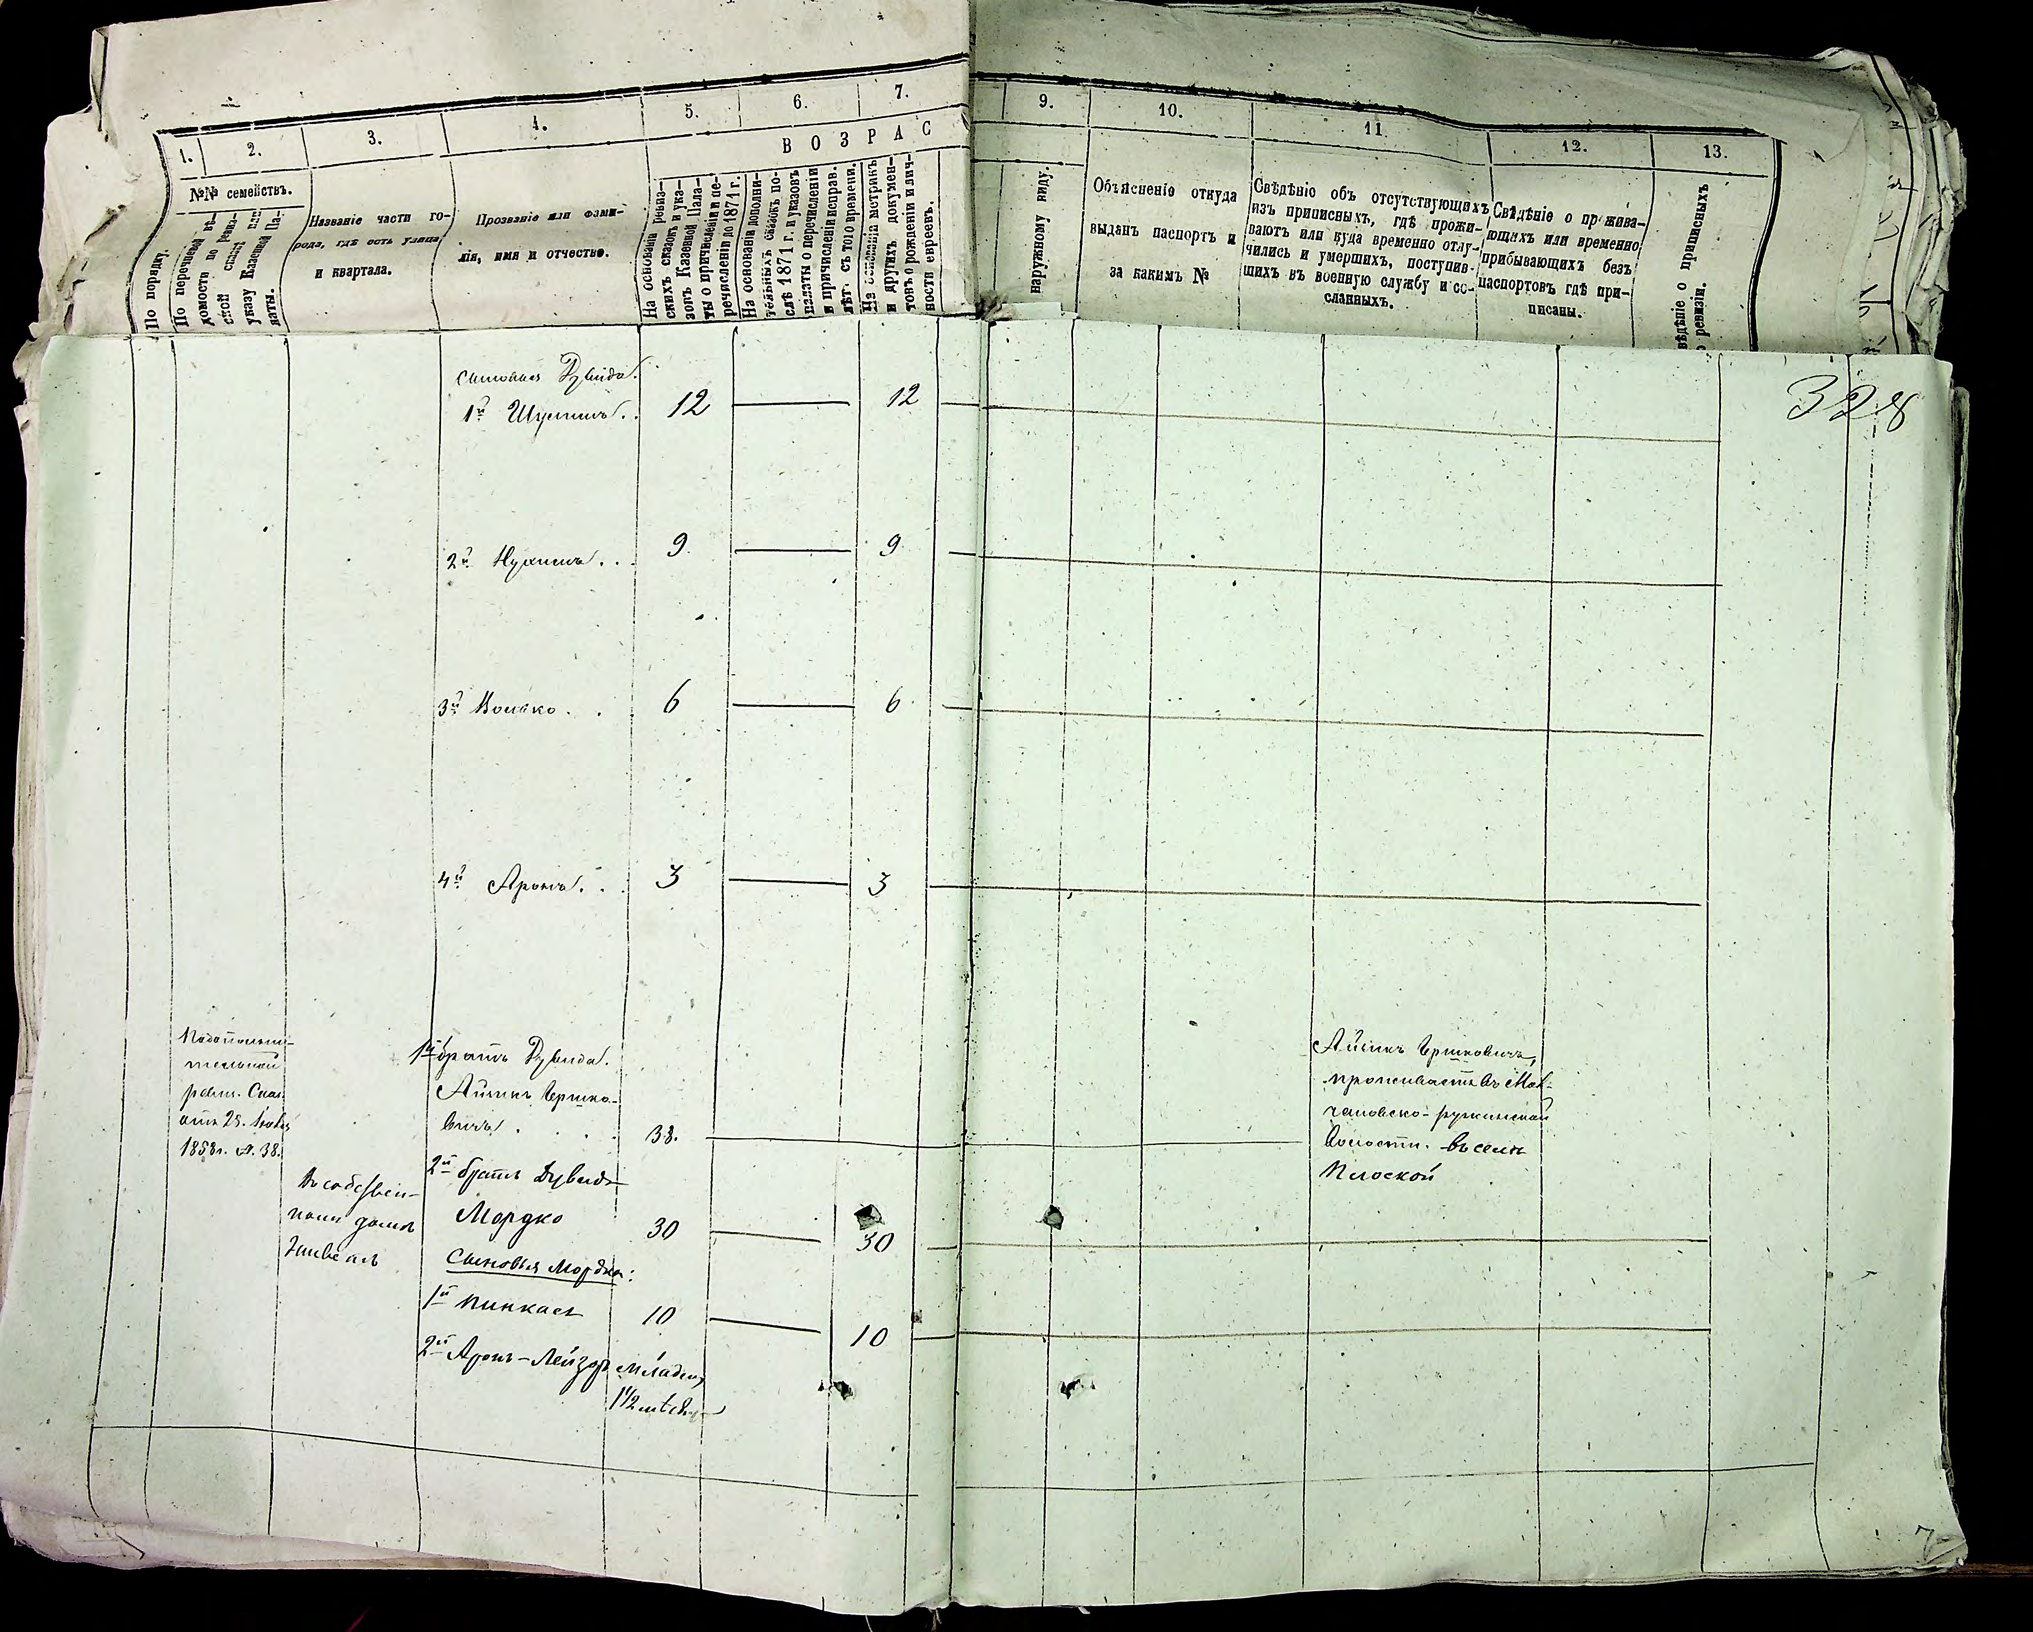 1. 2. 3. 4. 5. 6. 7.
ВОЗРАС
№№ семействъ.
По порядку.
По перечневой вѣ-
домости по ревиз-
ской сказкѣ или
указу Казенной Па-
латы.
Названіе части го-
рода, гдѣ есть улица
и квартала.
Прозваніе или фами-
лія, имя и отчество.
На основаніи ревиз-
скихъ сказокъ и ука-
зовъ Казенной Пала-
ты о причисленіи и пе-
речисленію до 1871 г.
На основаніи дополни-
тельныхъ сказокъ по-
слѣ 1871 г. и указовъ
палаты о перечисленіи
и причисленіи исправ.
лѣт. съ того времени.
На основаніи метрикъ
и другихъ докумен-
товъ о рожденіи и лич-
ности евреевъ.
9. 10. 11. 12. 13.
наружному виду.
Объясненіе откуда
выданъ паспортъ и
за какимъ №
Свѣдѣніе объ отсутствующихъ
изъ приписныхъ, гдѣ прожи-
ваютъ или куда временно отлу-
чились и умершихъ, поступив-
шихъ въ военную службу и со-
сланныхъ.
Свѣдѣніе о прожива-
ющихъ или временно
прибывающихъ безъ
паспортовъ гдѣ при-
писаны.
вѣдѣніе о приписныхъ
ревизіи.
328
сыновья Дувида.
1й Шулимъ. . 12 12
2й Нухимъ . . . 9. 9.
3й Волько . . 6 6
4й Аронъ. . . 3 3
По дополни-
тельной
ревиз. Сказ.
отъ 25. Ноября
1858 г. № 38.
1й братъ Дувида.
Айзикъ Гершко-
вичъ . . . . 38.
Айзикъ Гершковичъ,
проживаетъ въ Мол-
волости. въ селѣ
Плоской
Въ собствен-
номъ домѣ
2й братъ Дувида
Мордко 30 30
Сыновья Мордки:
1й Пинкасъ 10 10
2й Аронъ-Лейзоръ младен.
1 1/2 мѣсяца